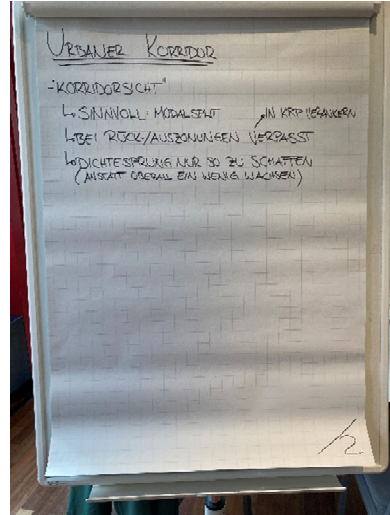 URBANER KORRIDOR
-"KORRIDORSICHT"
↳ SINNVOLL: MODALSPLIT IN KRP VERANKERN
↳ BEI RÜCK-/AUSZONUNGEN VERPASST
↳ DICHTESPRUNG NUR SO ZU SCHAFFEN
(ANSTATT ÜBERALL EIN WENIG WACHSEN)